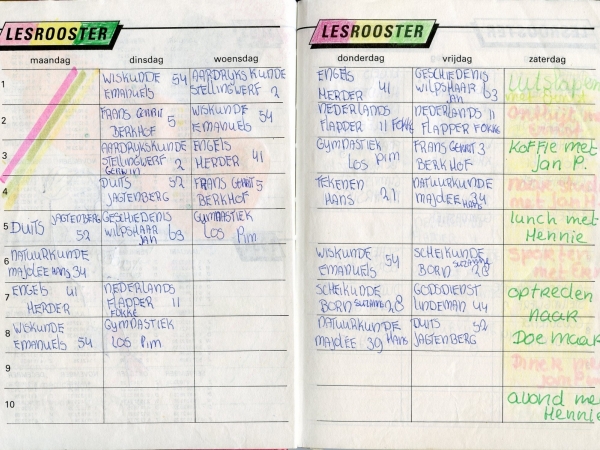 LESROOSTER
maandag dinsdag woensdag
1
WISKUNDE 54
EMANUELS
AARDRIJKSKUNDE
STELLINGWERF 2
2
FRANS GERRIT 5
BERKHOF
WISKUNDE 54
EMANUELS
3
AARDRIJKSKUNDE
STELLINGWERF 2
GERWIN
ENGELS
HERDER 41
4
DUITS 52
JAGTENBERG
FRANS GERRIT 5
BERKHOF
5
DUITS JAGTENBERG
52
GESCHIEDENIS
WILPSHAAR 63
JAN
GYMNASTIEK
LOS Pim
6
NATUURKUNDE
MAJOLÉE HANS 34
7
ENGELS 41
HERDER
NEDERLANDS
FLAPPER 11
FOKKE
8
WISKUNDE
EMANUELS 54
GYMNASTIEK
LOS Pim
9
10
LESROOSTER
donderdag vrijdag zaterdag
ENGELS
HERDER 41
GESCHIEDENIS
WILPSHAAR 63
JAN
Uitslapen
NEDERLANDS
FLAPPER 11 FOKKE
NEDERLANDS 11
FLAPPER FOKKE
Ontbijt met
GYMNASTIEK
LOS Pim
FRANS GERRIT 3
BERKHOF
Koffie met
Jan P.
TEKENEN
HANS 21
NATUURKUNDE
MAJOLÉE 34
HANS
lunch met
Hennie
WISKUNDE 54
EMANUELS
SCHEIKUNDE
BORN SUZANNE 28
sporten
SCHEIKUNDE
BORN SUZANNE 28
GODSDIENST
LINDEMAN 44
optreden
naar
NATUURKUNDE
MAJOLÉE 39 HANS
DUITS 52
JAGTENBERG
Doe maar
avond met
Hennie